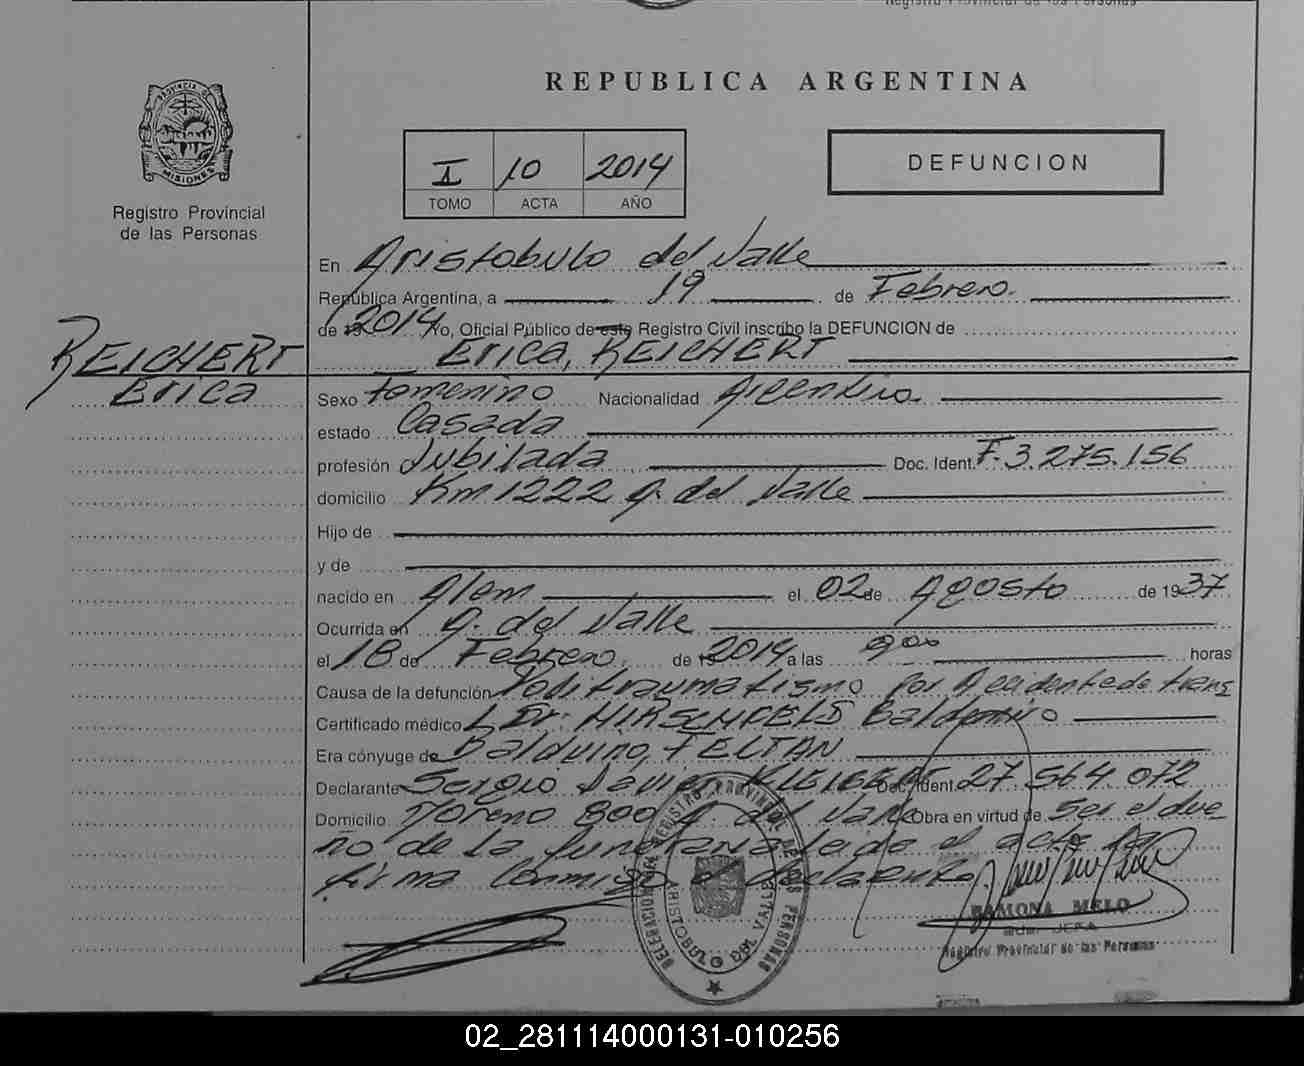 REPUBLICA ARGENTINA
PROVINCIA DE
MISIONES
Registro Provincial
de las Personas
I 10 2014
TOMO ACTA AÑO
DEFUNCION
En Aristobulo del Valle
República Argentina, a 19 de Febrero.
de 19 2014 Yo, Oficial Público de este Registro Civil inscribo la DEFUNCION de
Erica, REICHERT
REICHERT
Erica
Sexo Femenino Nacionalidad Argentina.
estado Casada
profesión Jubilada Doc. Ident. F. 3.275.156
domicilio Km 1222 A. del Valle
Hijo de
y de
nacido en Alem el 02 de Agosto de 1937
Ocurrida en A. del Valle
el 18 de Febrero. de 19 2014 a las 9 00 horas
Causa de la defunción Politraumatismo por Accidente de trans
Certificado médico Dr. HIRSCHFELD Baldomiro
Era cónyuge de Balduino FELTAN
Declarante Sergio Javier Doc. Ident. 27.564.072
Domicilio Moreno 800 A. del Valle Obra en virtud de Ser el due
ño de la funeraria leida el acta la
firma Conmigo el declarante.
DELEGACION DEL REGISTRO PROVINCIAL DE LAS PERSONAS
ARISTOBULO DEL VALLE
RAMONA MELO
JEFA
Registro Provincial de las Personas
02_281114000131-010256